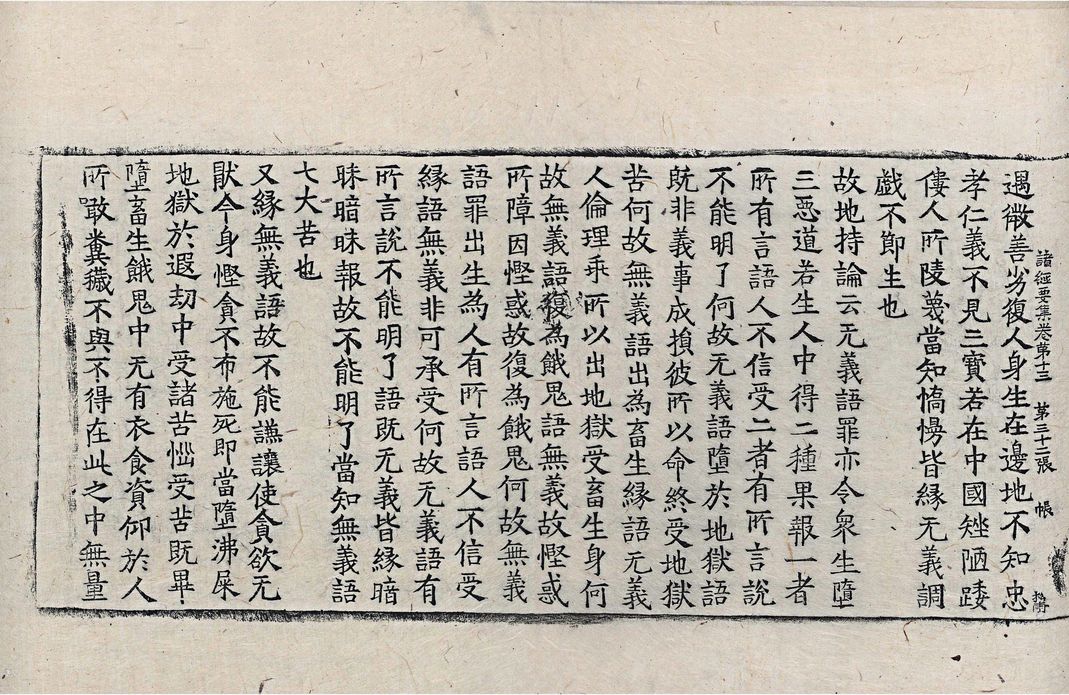 諸經要集卷第十三 第三十二張 帳
遇微善劣復人身生在邊地不知忠
孝仁義不見三寶若在中國矬陋踒
僂人所陵蔑當知憍慢皆緣无義調
戲不節生也
故地持論云无義語罪亦令衆生墮
三惡道若生人中得二種果報一者
所有言語人不信受二者有所言說
不能明了何故无義語墮於地獄語
旣非義事成損彼所以命終受地獄
苦何故無義語出為畜生緣語无義
人倫理乖所以出地獄受畜生身何
故無義語復為餓鬼語無義故慳惑
所障因慳惑故復為餓鬼何故無義
語罪出生為人有所言語人不信受
緣語無義非可承受何故无義語有
所言說不能明了語旣无義皆緣暗
昧暗昧報故不能明了當知無義語
七大苦也
又緣無義語故不能謙讓使貪欲无
猒今身慳貪不布施死即當墮沸屎
地獄於遐劫中受諸苦惱受苦旣畢
墮畜生餓鬼中无有衣食資仰於人
所噉糞穢不與不得在此之中無量